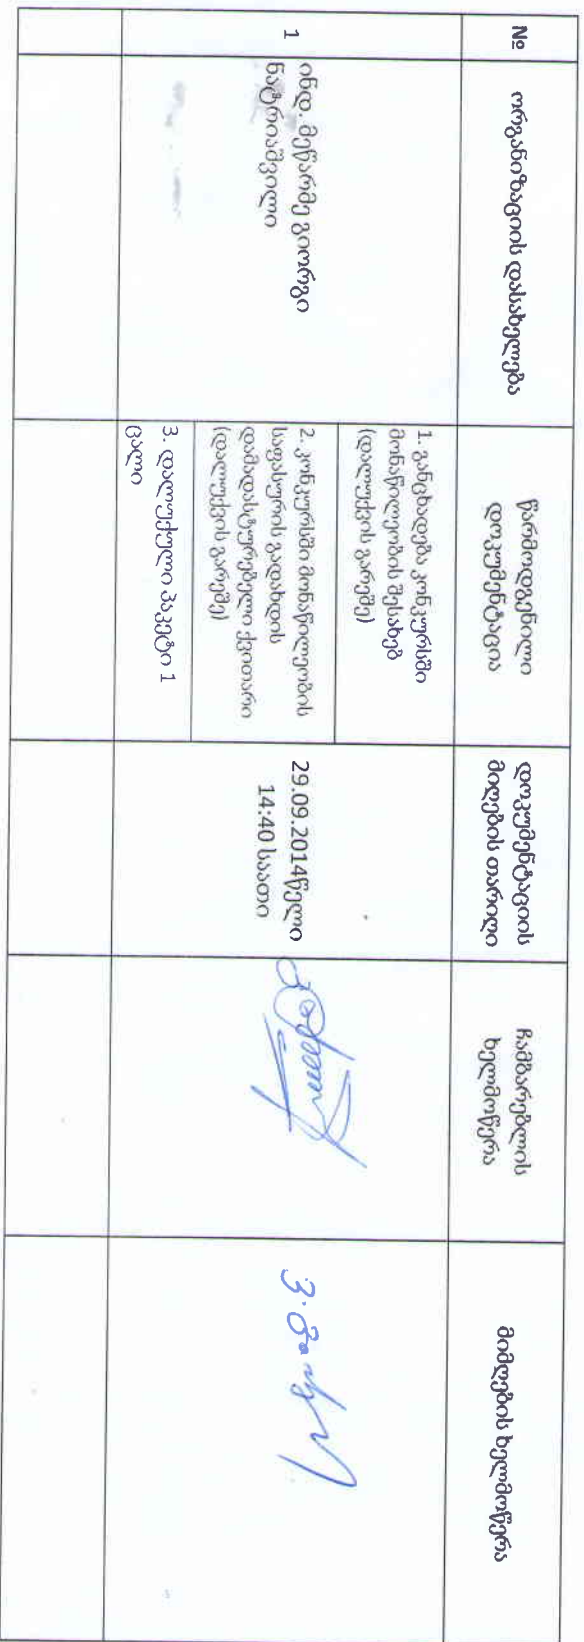 №
ორგანიზაციის დასახელება
წარმოდგენილი
დოკუმენტაცია
დოკუმენტაციის
მიღების თარიღი
ჩამბარებლის
ხელმოწერა
მიმღების ხელმოწერა
1
ინდ. მეწარმე გიორგი
ნატრიაშვილი
1. განცხადება კონკურსში
მონაწილეობის შესახებ
(დალუქვის გარეშე)
2. კონკურსში მონაწილეობის
საფასურის გადახდის
დამადასტურებელი ქვითარი
(დალუქვის გარეშე)
3. დალუქული პაკეტი 1
ცალი
29.09.2014წელი
14:40 საათი